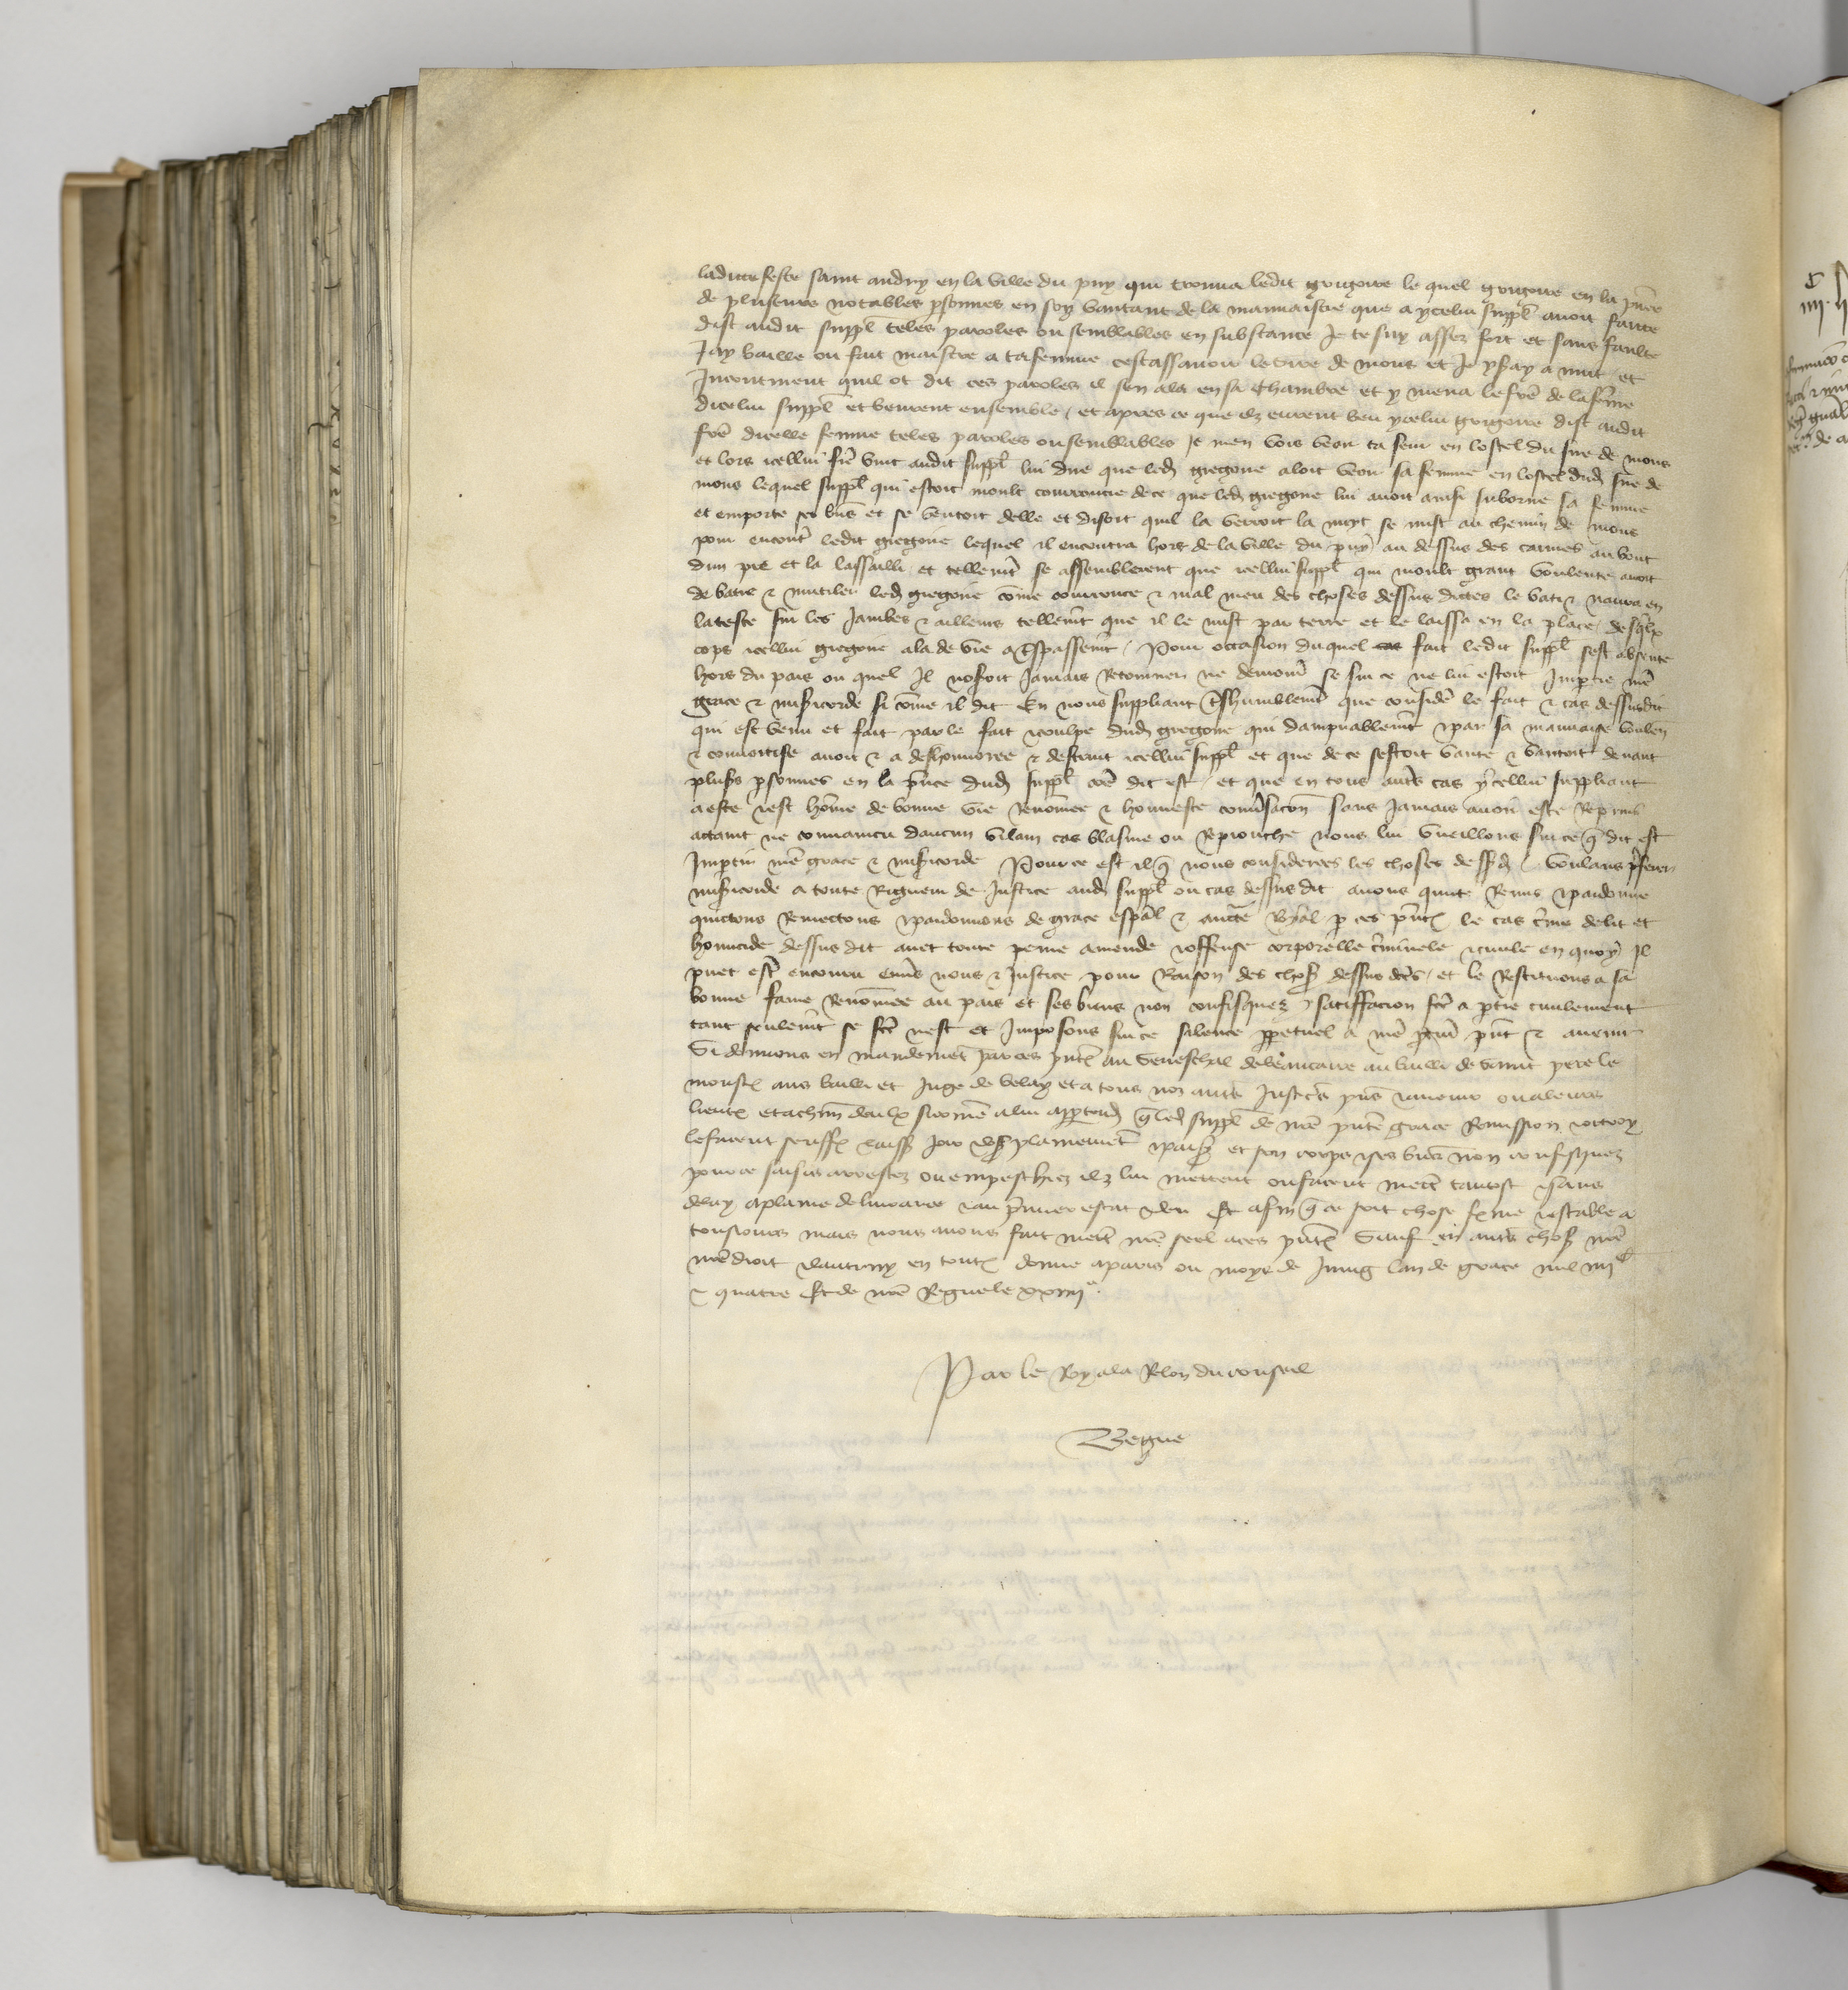 ladicte feste saint andry en la ville du puy qui trouva ledit gregoire le quel gregoire en la pñce
de pluseurs notables psonnes en soy vantant de la mauvaistie que a ycelui suppl avoit faicte
dist audit suppl teles paroles ou semblables en substance Je te suy assez fort et sans faulte
Jay baille ou fait maistre a ta femme cestassavoir de mons et Je yray a nuit et
Incontinent quil ot dit ces paroles il sen ala en sa chambre et y mena le frē de la fēme
dicelui suppl et beurent ensemble / et apres ce que ilz eurent beu ycelui gregoire dist audit
frē dicelle femme teles paroles ou semblables Je men vois veoir ta seur en lostel du sire de mons
et lors icellui frē vint audit suppl lui dire que led gregoire aloit veoir sa femme en lostel dud sire de
mons lequel suppl qui estoit moult courroucie de ce que led gregoire lui avoit ainsi suborne sa femme
et emporte ses bñs et se ventoit delle et disoit quil la verroit la nuyt se mist au chemin de mons
pour encontr ledit gregoire lequel il encontra hors de la ville du puy au dessus des carmes au bout
dun pre et la lassailli et tellemt se assemblerent que icellui suppl qui moult grant voulente avoit
de batre & mutiler led gregoire cōme courrouce & mal meu des choses dessus dictes le bati & navra en
la teste sur les Jambes & ailleurs tellemt que il le mist par terre et le laissa en la place / desqlx
cops icellui gregoire ala de vie a tspassemt / Pour occasion duquel fait ledit suppl sest absente
hors du pais ou quel Il noseroit Jamais Retourner ne demourer se sur ce ne lui estoit Impartie nrē
grace & misicorde si cōme il dit En nous suppliant tshumblemt que considere le fait & cas dessusdit
qui est venu et fait par le fait & coulpe dud gregoire qui dampnablemt & par sa mauvaise voulen
& convoitise avoit & a deshonnoree & destruit icellui suppl et que de ce sestoit vante & vantoit devant
plusrs psonnes en la pñce dud suppl cōe dit est / et que en tous autrs cas ycellui suppliant
a este & est hōme de bonne vie Renōmee & honneste conversacon sans Jamais avoir este Reprins
attaint ne convaincu daucun vilain cas blasme ou Reprouche nous lui vueillons sur ce q dit est
Impartir nrē grace & misicorde Pource est il q nous considerees les choses dessd / voulans pferer
misicorde a toute Rigueur de Justice aud suppl ou cas dessus dit avons quitte Remis & pardonne
quictons Remectons & pardonnons de grace espāl & aucte Royāl p ces pñtes le cas crime delit et
homicide dessus dit avec toute peine amende & offense corporelle criminele & civile en quoy Il
puet estr encouru envrs nous & Justice pour Raison des chos dessus dcēs / et le Restituons a sa
bonne fame Renōmee au pais et ses biens non confisquez & satiffacion fce a ptie civilement
tant seulemt se fce nest et Imposons sur ce silence ppetuel a nrē pcur pñt & avenir
Si donnons en mandemet par ces pñtes au Seneschal de beaucaire au bailli de saint pere le
monst aus bailli et Juge de velay et a tous noz autrs Justicrs pñs & avenir ou a leurs
lieuxten et a chūn deulx si cōme a lui appartendra q led suppl de nrē pñte grace Remission & ottroy
le facent seuffrent & laissent Joir & user plainemet & paisiblement et son corps & ses biens non confisquez
pource saisiz arrestez ou empeschiez ilz lui mettent ou facent mectre tantost & sans
delay a plaine delivrance & au prmier estat & deu Et afin q ce soit chose ferme & estable a
tousiours mais nous avons fait mectre nrē seel a ces pñtes Sauf en autrs choses nrē
droit & lautruy en toutes donne a paris ou moys de Juing lan de grace mil iiiic
& quatre Et de nrē Regne le xxiiiie.
Par le Roy a la Relon du conseil
Begue